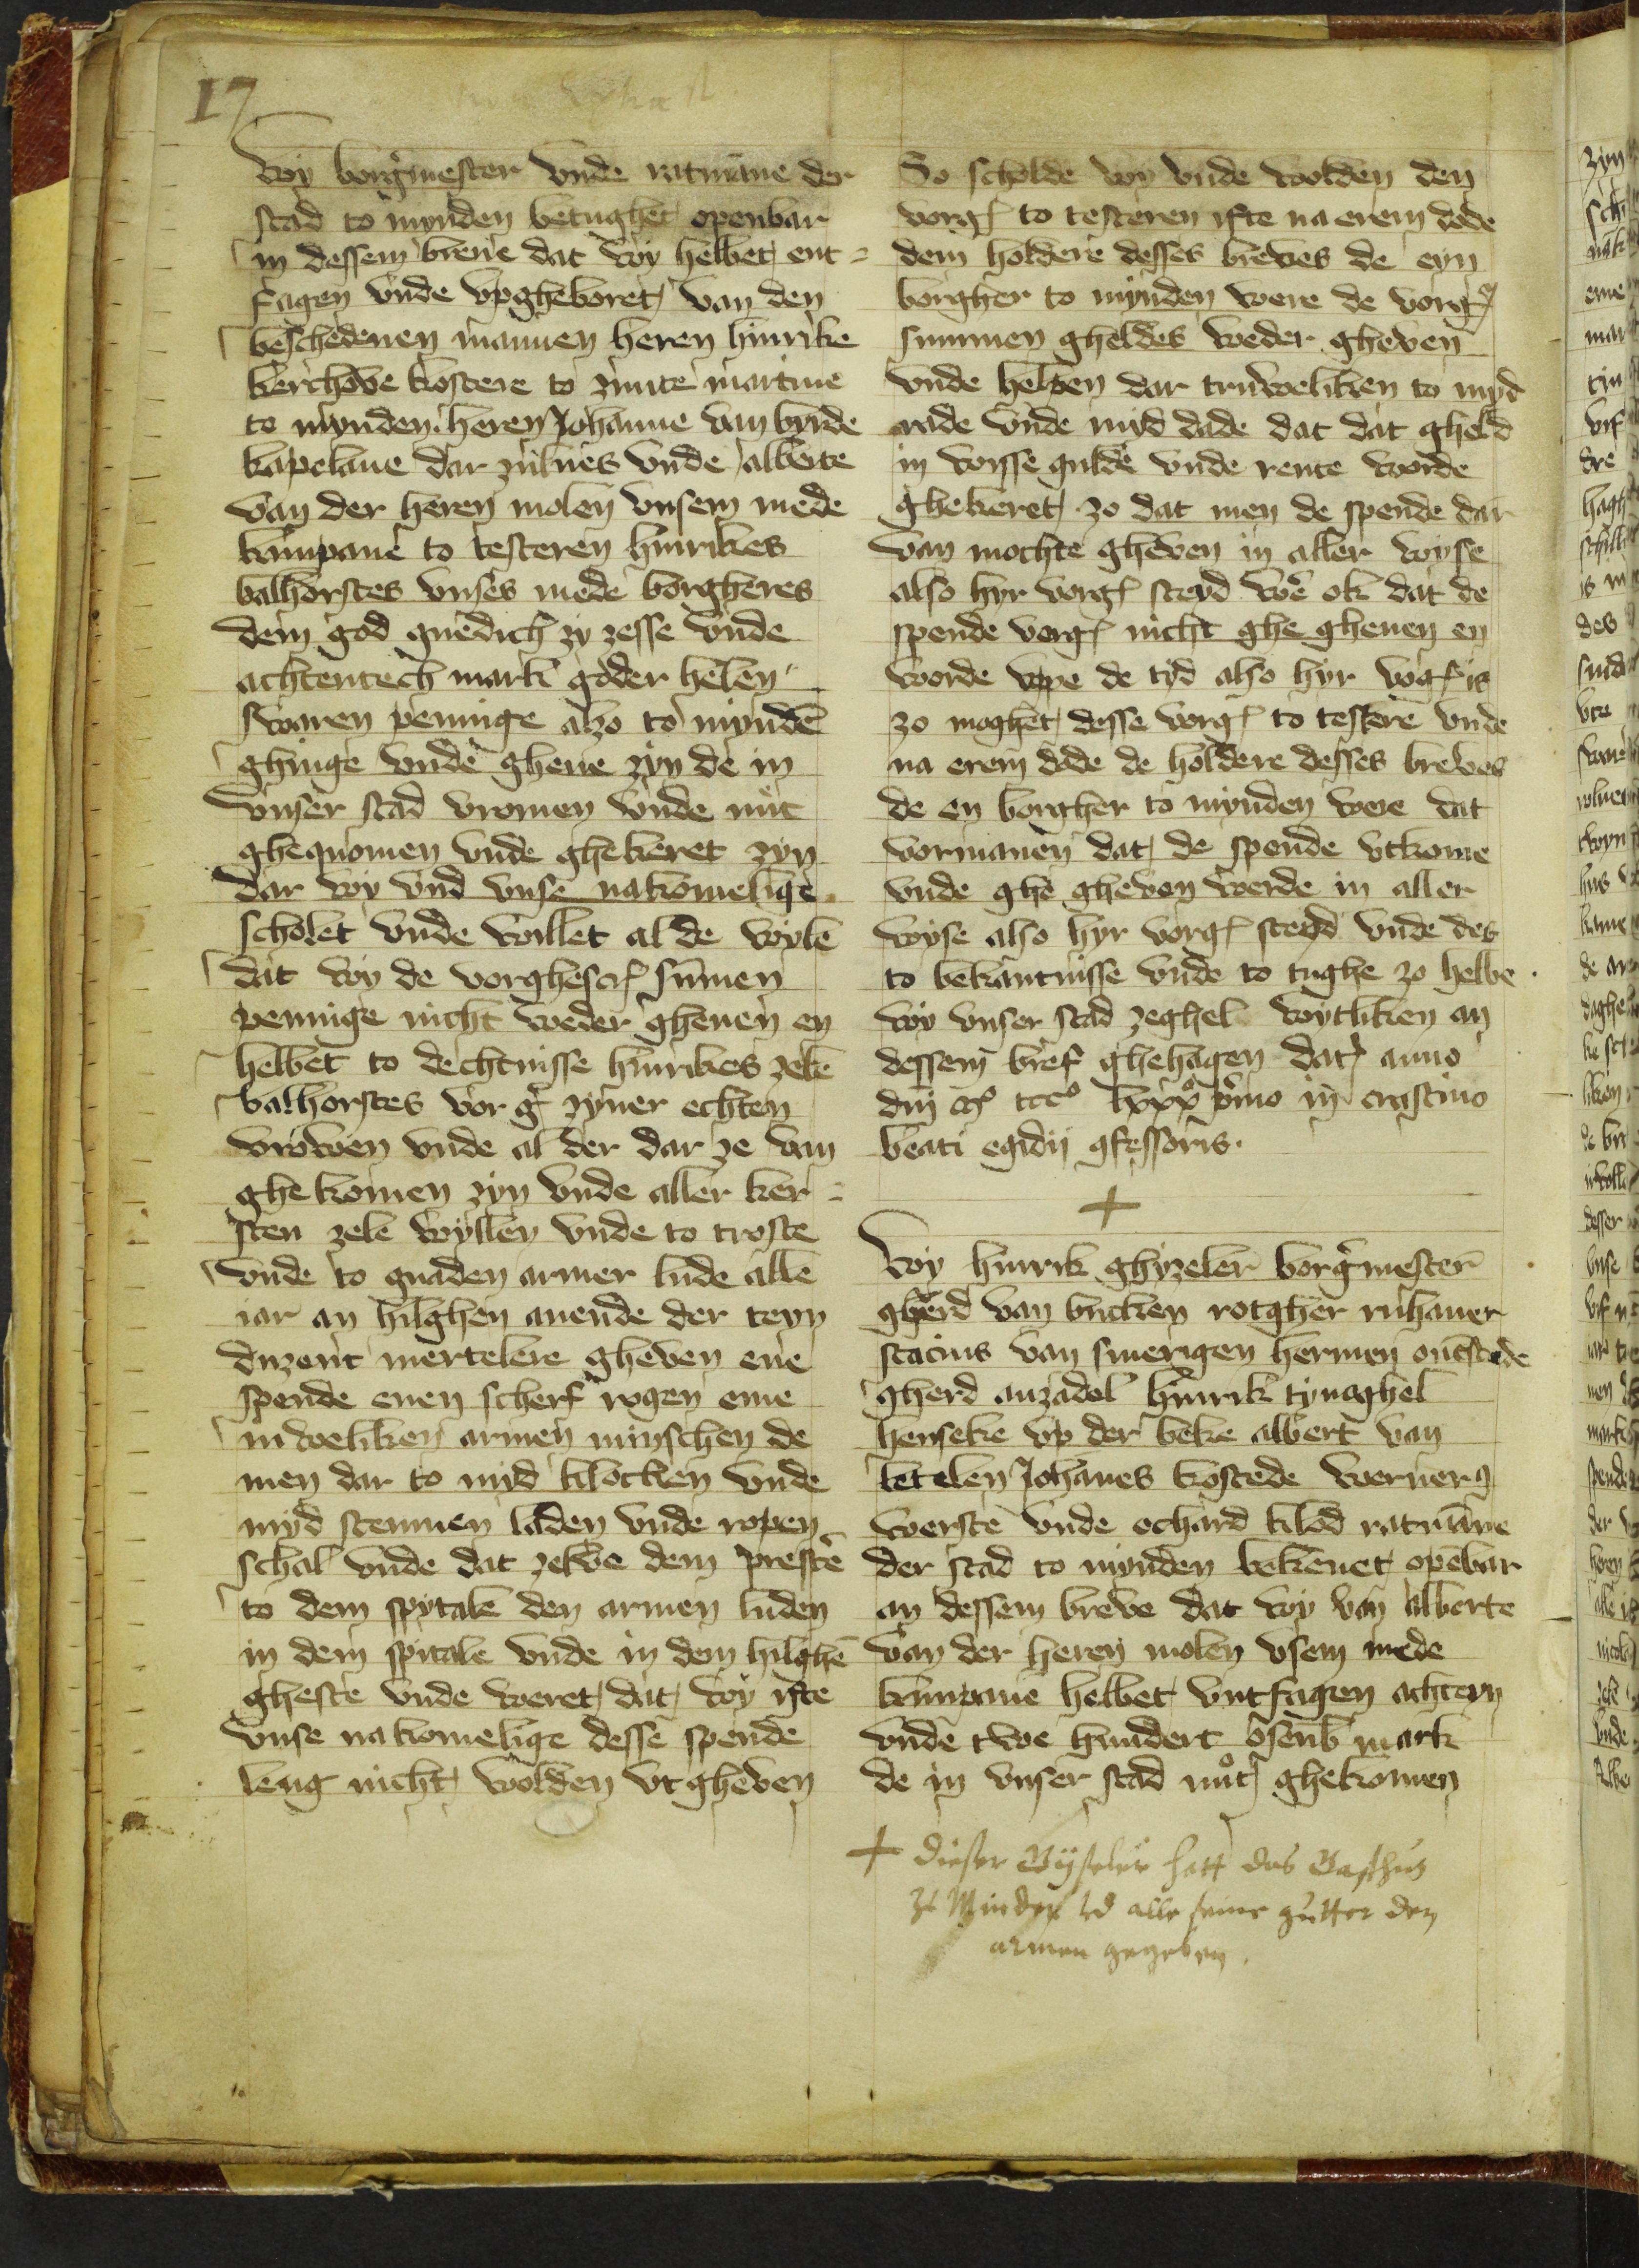 17
Wy borg̃mester vnde ratmāne der
stad to mynden betughet openbar
in dessem breue dat wy hebbet ent-
fagen vnde vpgheboret van den
beschedenen mannen heren hinrike
kerchove kostere to zunte martine
to mynden heren Johanne van bynde
kapelane dar zulues vnde alberte
van der heren molen vnsem mede
kumpane to testeren hinrikes
balhorstes vnses mede borgheres
dem god gnedich zy zesse vnde
achtentech mark goder helen
swaren pennige alzo to myndē
ghinge vnde gheue zyn de in
vnser stad vromen vnde nůt
ghequomen vnde ghekeret zyn
dar wy vnd vnse nakomelige
scholet vnde willet al de wylē
dat wy de vorghescr̃ sūmen
pennige nicht weder gheuen en
hebbet to dechtnisse hinrikes zele
balhorstes vor g̃ zyner echten
vrowen vnde al der dar ze van
ghe komen zyn vnde aller ker-
sten zele wyllen vnde to troste
vnde to gnaden armer lude alle
iar an hilghen auende der teyn
duzent mertelere gheven ene
spende enen scherf rogen eme
iuweliken armen minschen de
men dar to myd klocken vnde
myd stemmen luden vnde ropen
schal vnde dat zelve dem prestē
to dem spytale den armen luden
in dem spitale vnde in dem hilghē
gheste vnde weret dat wy ifte
vnse nakomelige desse spende
leng nicht wolden vtgheven
So scholde wy vnde wolden den
vorg̃ to testeren ifte na erem dode
dem holdere desses breves de eyn
borgher to mynden were de vorg̃
summen gheldes weder gheven
vnde helpen dar truweliken to myd
rade vnde myd dade dat dat gheld
in wisse gulde vnde rente worde
ghekeret zo dat men de spende dar
van mochte gheven in aller wyse
also hyr vorg̃ steyd wē ok dat de
spende vorg̃ nicht ghe gheuen en
worde vppe de tyd also hyr vog̃ is
zo moghet desse vorg̃ to testere vnde
na erem dode de holdere desses breves
de en borgher to mynden were dat
vormanen dat de spende vtkome
vnde ghe gheven werde in aller
wyse also hyr vorg̃ steyd vnde des
to bekantnisse vnde to tughe zo hebbe
wy vnser stad zeghel wytliken an
dessem bref ghehagen dat̃ anno
dn̄i mͦ cccͦ lxxxͦ p̃mo in crastino
beati egidij ꝯfessoris.
+
Wy hinrik ghyzeler borg̃mester
gherd van bucken rotgher ruhauer
stacius van smerigen hermen ouestede
gherd anzadel hinrik tynaghel
henseke vp der beke albert van
letelen Johanes kostede werner
werste vnde echard klod ratmāne
der stad to mynden bekennet opēbar
an dessem breve dat wy van alberte
van der heren molen vsem mede
kumpane hebbet vntfagen achteyn
vnde twe hundert osenb̃ mark
de in vnser stad nůt ghekomen
+ dieser Gyseler hatt das Gasthus
zu Minden vd alle seine gutter den
armen gegeben.